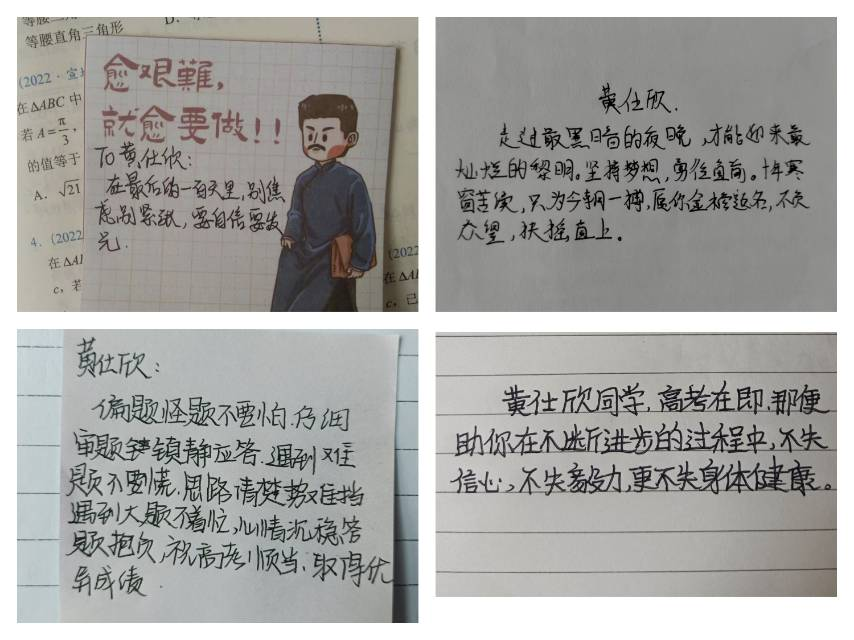 等腰直角三角形
(2022·宜
在△ABC中
若A=π/3,
的值等于
A. √21
4. (2022
在△AB
c,若
愈艰難,
就愈要做!!
To 黄仕欣:
在最后的一百天里,别焦
虑别紧张,要自信要发
光.
(2022
在△A
c,已
黄仕欣.
走过最黑暗的夜晚,才能迎来最
灿烂的黎明。坚持梦想,勇往直前。十年寒
窗苦读,只为今朝一搏,愿你金榜题名,不负
众望,扶摇直上。
黄仕欣:
偏题怪题不要怕.仔细
审题镇静应答.遇到难
题不要慌.思路清楚势难挡
遇到大题不着忙,心情沉稳答
题抱负,祝高考顺当,取得优
异成绩.
黄仕欣同学,高考在即,那便
助你在不断进步的过程中,不失
信心,不失毅力,更不失身体健康。